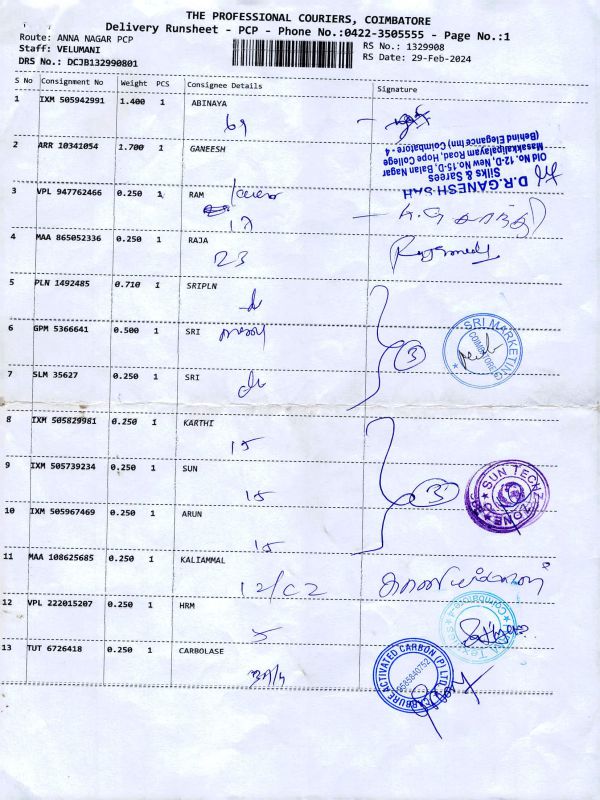 THE PROFESSIONAL COURIERS, COIMBATORE
Delivery Runsheet - PCP - Phone No.:0422-3505555 - Page No.:1
Route: ANNA NAGAR PCP
RS No.: 1329908
Staff: VELUMANI
RS Date: 29-Feb-2024
DRS No.: DCJB132990801
S No Consignment No Weight PCS Consignee Details Signature
1 IXM 505942991 1.400 1 ABINAYA
69
2 ARR 10341054 1.700 1 GANEESH
D.R.GANESH SAH
Silks & Sarees
Old No. 12, D, New No.15-D, Balan Nagar
Masakkalipalayam Road, Hope College
(Behind Elegance Inn) Coimbatore - 4
3 VPL 947762466 0.250 1 RAM
17
4 MAA 865052336 0.250 1 RAJA
23
5 PLN 1492485 0.710 1 SRIPLN
6 GPM 5366641 0.500 1 SRI
3
SRI MARKETING
7 SLM 35627 0.250 1 SRI
8 IXM 505829981 0.250 1 KARTHI
15
9 IXM 505739234 0.250 1 SUN
15
3
SUN TECHZ ZONE
10 IXM 505967469 0.250 1 ARUN
15
11 MAA 108625685 0.250 1 KALIAMMAL
12/C2
12 VPL 222015207 0.250 1 HRM
5
13 TUT 6726418 0.250 1 CARBOLASE
CARBURE ACTIVATED CARBON (P) LTD
9585840752